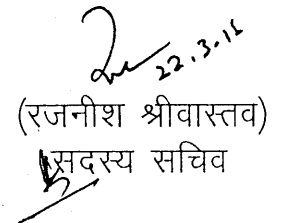 22.3.18
(रजनीश श्रीवास्तव)
सदस्य सचिव